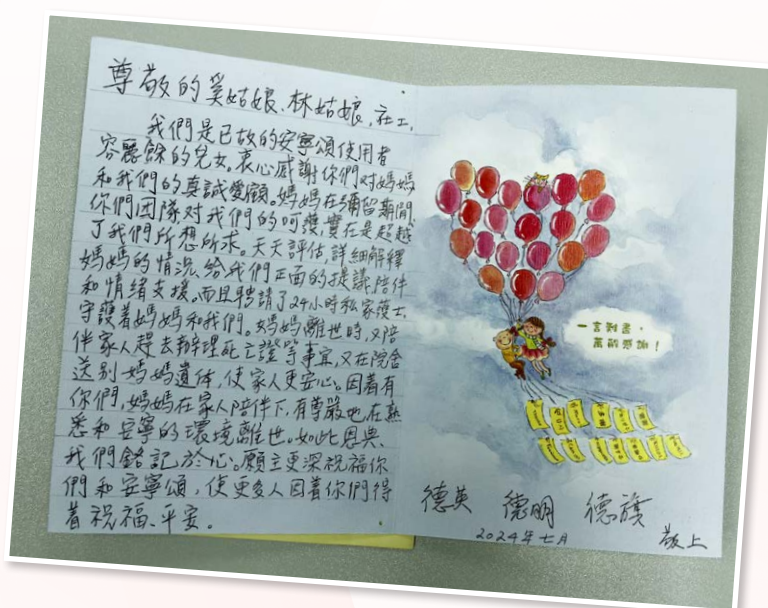 尊敬的奚姑娘、林姑娘、社工,
我們是已故的安寧頌使用者
容麗餘的兒女。衷心感謝你們对媽媽
和我們的真誠愛顧。媽媽在彌留期間,
你們团隊对我們的呵護,實在是超越
了我們所想所求。天天評估,詳細解釋
媽媽的情況,給我們正面的提議,陪伴
和情緒支援。而且聘請了24小時私家護士,
守護着媽媽和我們。媽媽離世時,又陪
伴家人趕去辦理死亡證等事宜,又在院舍
送别媽媽遺体,使家人更安心。因着有
你們,媽媽在家人陪伴下,有尊嚴地,在熟
悉和安寧的環境離世。如此恩典,
我們銘記於心。願主更深祝福你
們和安寧頌,使更多人因着你們得
着祝福、平安。
一言難盡,
萬般感謝!
德英 德明 德旗
2024年七月 敬上